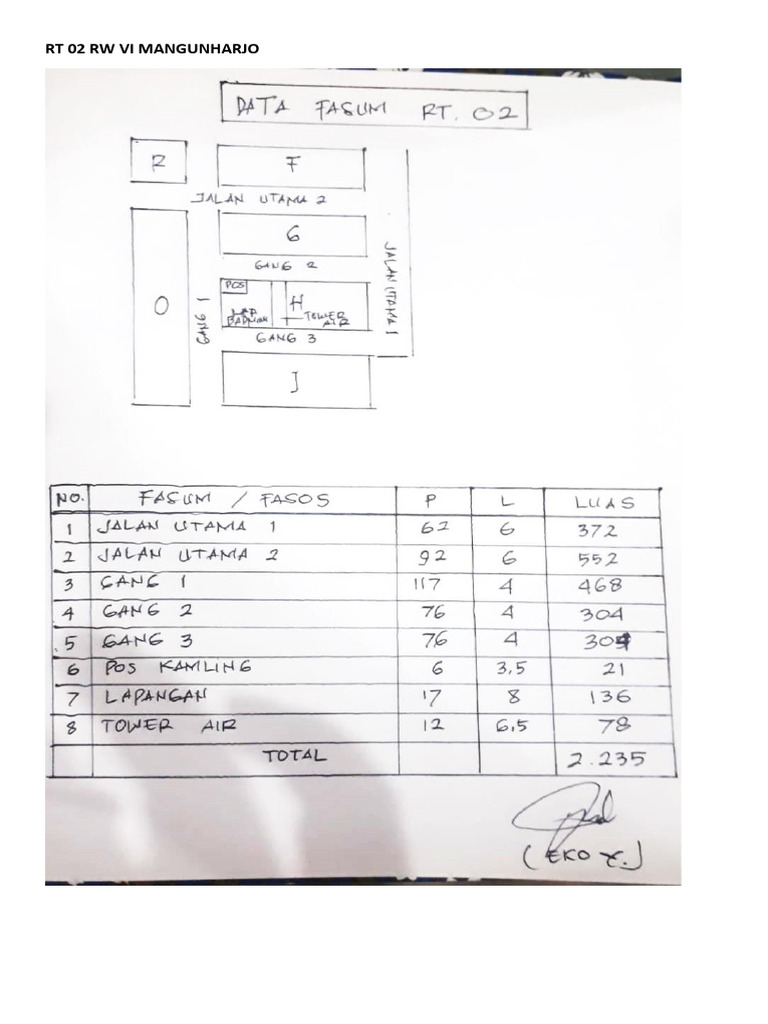 RT 02 RW VI MANGUNHARJO
DATA FASUM RT. 02
R F
JALAN UTAMA 2
G
GANG 2
JALAN UTAMA 1
POS
O
GANG 1
H
LAP BADMINN
TOWER AIR
GANG 3
J
NO. FASUM / FASOS P L LUAS
1 JALAN UTAMA 1 62 6 372
2 JALAN UTAMA 2 92 6 552
3 GANG 1 117 4 468
4 GANG 2 76 4 304
5 GANG 3 76 4 304
6 POS KAMLING 6 3,5 21
7 LAPANGAN 17 8 136
8 TOWER AIR 12 6,5 78
TOTAL 2.235
(EKO Y.)